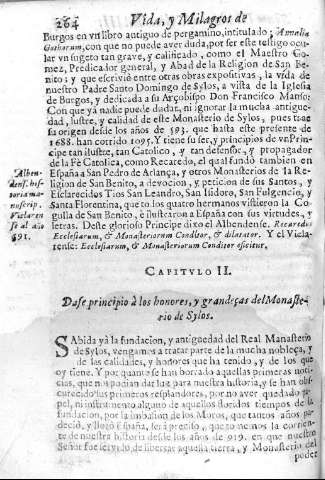 264 Vida, y Milagros de
Burgos en vn libro antiguo de pergamino, intitulado; Annalia
Gothorum, con que no puede aver duda, por ser este testigo ocu-
lar vn sugeto tan grave, y calificado, como el Maestro Go-
mez, Predicador general, y Abad de la Religion de San Be-
nito; y que escrivió entre otras obras expositivas, la vida de
nuestro Padre Santo Domingo de Sylos, a vista de la Iglesia
de Burgos, y dedicada a su Arçobispo Don Francisco Manso:
Con que yà nadie puede dudar, ni ignorar la mucha antigue-
dad, lustre, y calidad de este Monasterio de Sylos, pues trae
su origen desde los años de 593. que hasta este presente de
1688. han corrido 1095. Y tiene su ser, y principio de vn Prin-
cipe tan ilustre, tan Catolico, y tan defensor, y propagador
de la Fè Catolica, como Recaredo, el qual fundò tambien en
España a San Pedro de Arlança, y otros Monasterios de la Re-
ligion de San Benito, a devocion, y peticion de sus Santos, y
Esclarecidos Tios San Leandro, San Isidoro, San Fulgencio, y
Santa Florentina, que todos quatro hermanos vistieron la Co-
gulla de San Benito, è ilustraron a España con sus virtudes, y
letras. Deste glorioso Principe dixo el Albendense. Recaredus
Ecclesiarum, & Monasteriorum Conditor, & dilatator. Y el Vicla-
rense: Ecclesiarum, & Monasteriorum Conditor efficitur.
Alben-
dens. his-
toria ma-
nuscrip.
Viclaren-
se al año
591.
CAPITVLO II.
Dase principio à los honores, y grandeças del Monaste-
rio de Sylos.
SAbida yà la fundacion, y antiguedad del Real Monasterio
de Sylos, vengamos a tratar parte de la mucha nobleça, y
de las calidades, y honores que ha tenido, y de los que
oy tiene. Y por quanto se han borrado aquellas primeras noti-
cias, que nos podian dar luz para nuestra historia, y se han obs-
curecido sus primeros resplandores, por no aver quedado pa-
pel, ni instrumento alguno de aquellos floridos tiempos de la
fundacion, por la imbasion de los Moros, que tantos años pa-
deciò, y llorò España, serà preciso, que tomemos la corrien-
te de nuestra historia desde los años de 919. en que nuestro
Señor fue servido, de libertar aquella tierra, y Monasterio del
poder